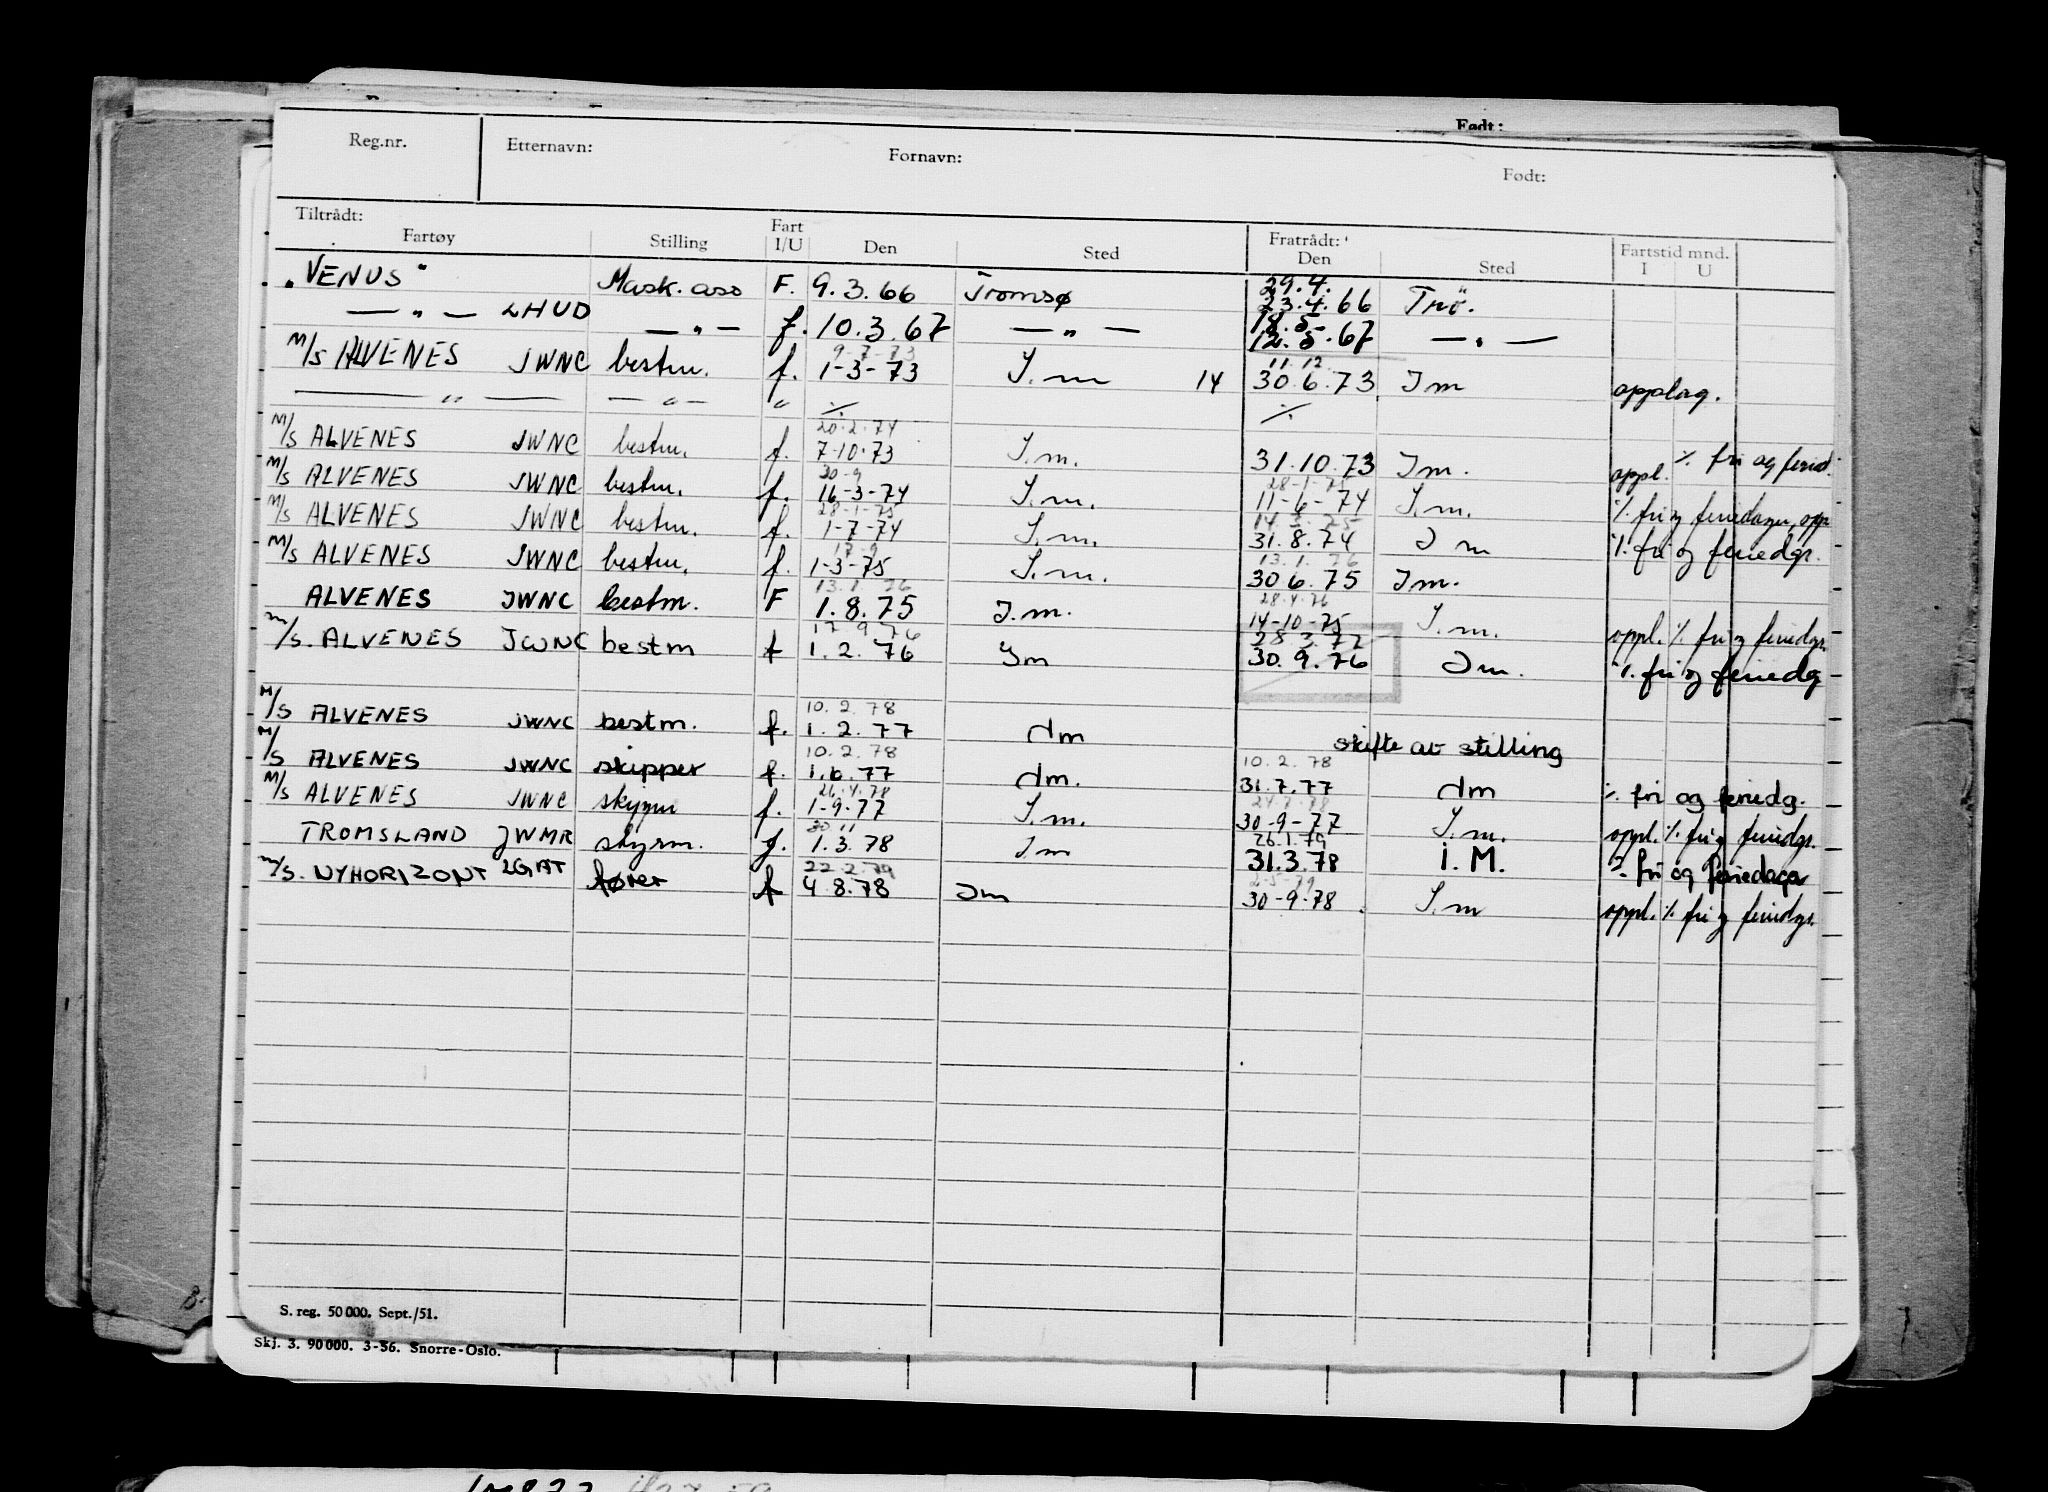 Født:
Reg.nr. Etternavn: Fornavn: Født:
Tiltrådt: Fratrådt: Fartstid mnd.
Fartøy Stilling Fart I/U Den Sted Den Sted I U
"VENUS" Mask. ass F. 9.3.66 Tromsø 29.4. 23.4.66 Trö.
— " — LHUD — " — f. 10.3.67 — " — 18.5- 12.5.67 — " —
M/S ALVENES JWNC bestm. f. 9-7-73 1-3-73 I.m 14 11.12. 30.6.73 Im opplag.
— " — — " — " ٪ ٪
M/S ALVENES JWNC bestm. f. 20.2.74 7-10-73 I.m. 31.10.73 Im. oppl. ٪ fri og feried.
M/S ALVENES JWNC bestm. f. 30-9 16-3-74 I.m. 28-1-75 11-6-74 I.m. ٪ fri og feriedager, opp
M/S ALVENES JWNC bestm. f. 28-1-75 1-7-74 I.m. 14.3.75 31.8.74 I m ٪ fri og feriedgr.
M/S ALVENES JWNC bestm. f. 17-9 1-3-75 I.m. 13.1.76 30.6.75 Im.
ALVENES JWNC bestm. F 13.1.76 1.8.75 I.m. 28.4.76 14-10-75 I.m. oppl. ٪ fri og feriedgr.
m/s. ALVENES JWNC bestm f 17 9 76 1.2.76 Im 28.3.77 30.9.76 Im. ٪ fri og feriedg
M/S ALVENES JWNC bestm. f. 10.2.78 1.2.77 Im skifte av stilling
M/S ALVENES JWNC skipper f. 10.2.78 1.6.77 Im. 10.2.78 31.7.77 Im ٪ fri og feriedg.
M/S ALVENES JWNC f. 26.4.78 1-9-77 I.m. 24.7.78 30-9-77 I.m. oppl. ٪ fri og feriedgr.
TROMSLAND JWMR styrm. f. 30.11 1.3.78 Im 26.1.79 31.3.78 I.M. ٪ fri og feriedager
m/s. NYHORIZONT LGAT fører f 22.2.79 4.8.78 Im 2-5-79 30-9-78 I.m oppl. ٪ fri og feriedgr.
S. reg. 50 000. Sept./51.
Skj. 3. 90 000. 3-56. Snorre-Oslo.